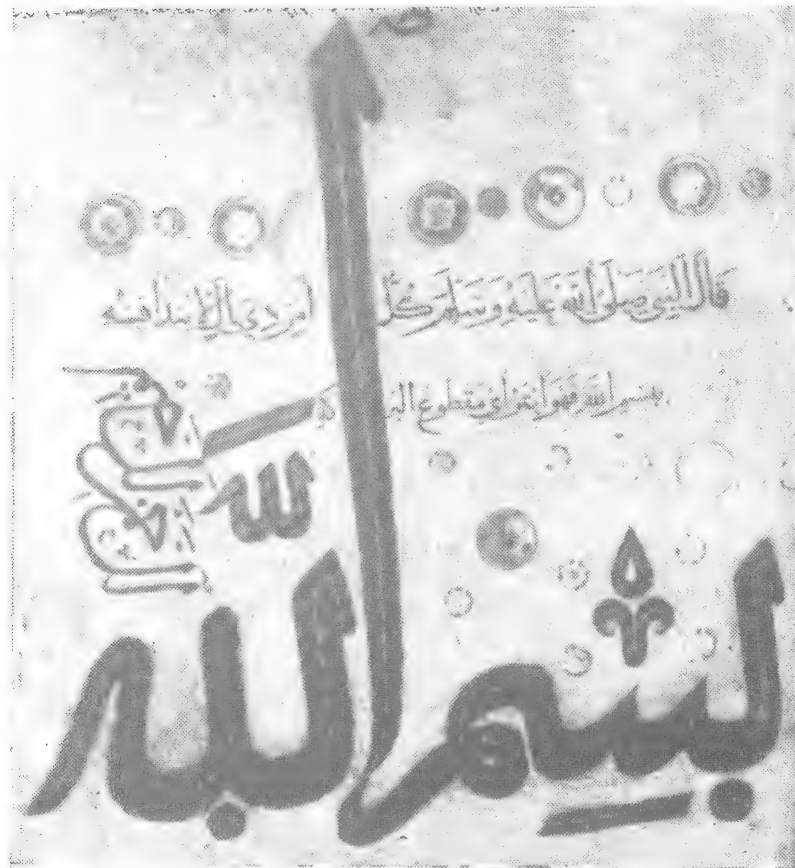 قال النبي صلى الله عليه وسلم كل امر ذي بال لا يبدا فيه
بسم الله فهو ابتر اي مقطوع
لله
بسم الله